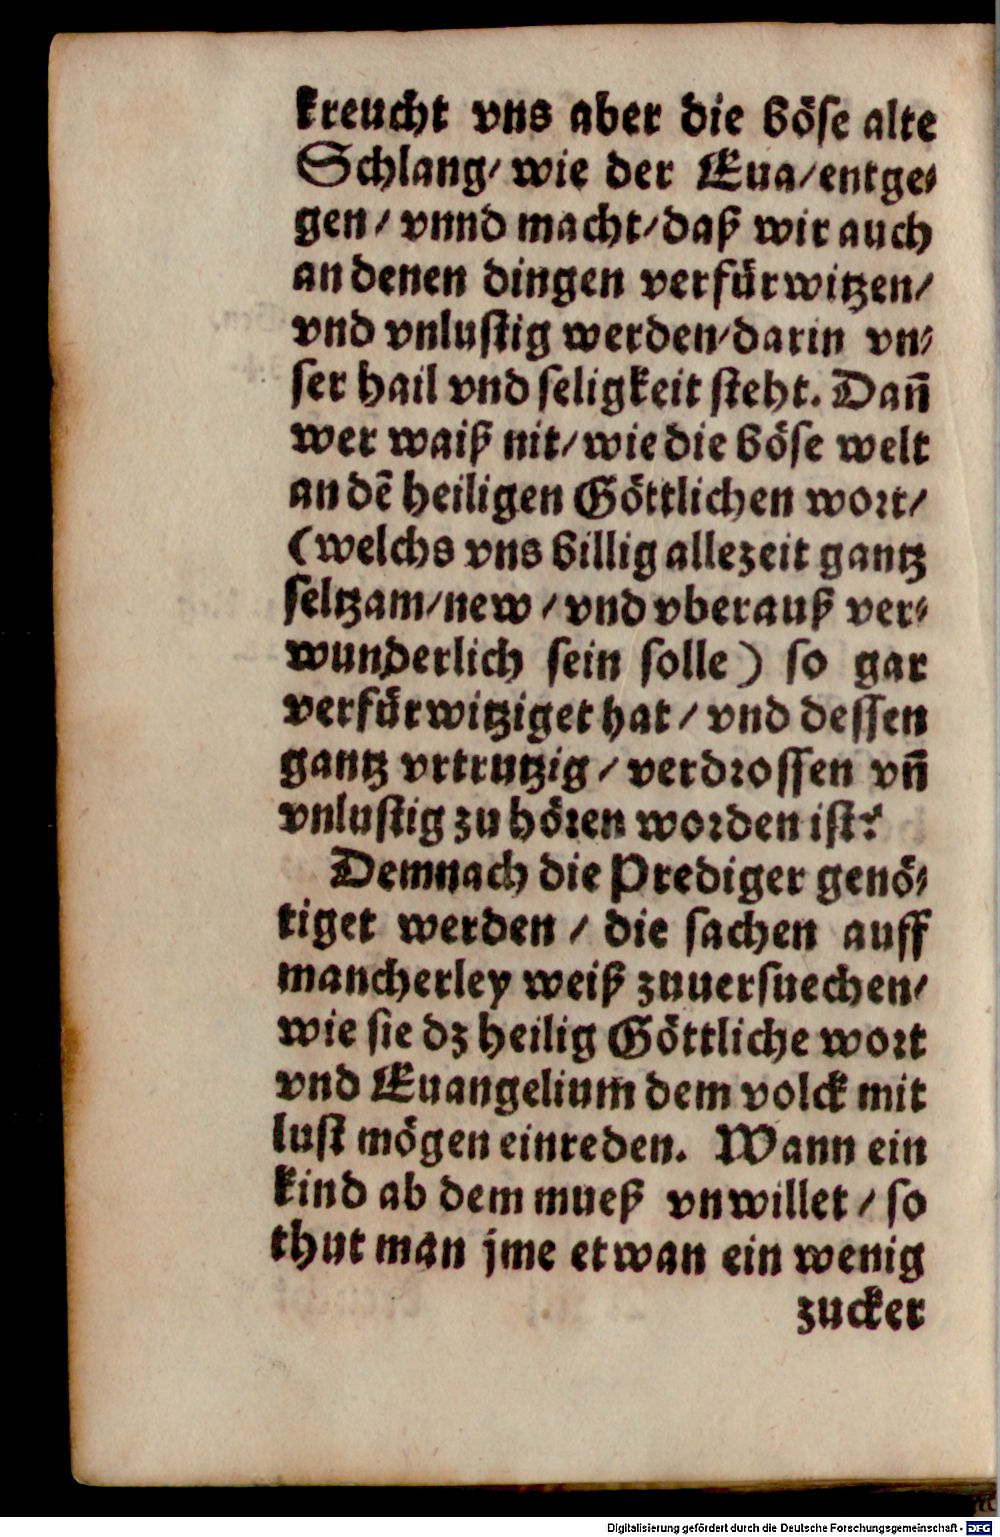 kreucht vns aber die böse alte
Schlang/ wie der Eua/entge⸗
gen/ vnnd macht/daß wir auch
an denen dingen verfürwitzen/
vnd vnlustig werden/darin vn⸗
ser hail vnd seligkeit steht. Dañ
wer waiß nit/wie die böse welt
an dē heiligen Göttlichen wort/
(welchs vns billig allezeit gantz
seltzam/new/vnd vberauß ver⸗
wunderlich sein solle) so gar
verfürwitziget hat/vnd dessen
gantz vrtrutzig/verdrossen vñ
vnlustig zu hören worden ist?
Demnach die Prediger genö⸗
tiget werden/ die sachen auff
mancherley weiß zuuersuechen/
wie sie dz heilig Göttliche wort
vnd Euangelium dem volck mit
lust mögen einreden. Wann ein
kind ab dem mueß vnwillet/so
thut man jme etwan ein wenig
zucker
Digitalisierung gefördert durch die Deutsche Forschungsgemeinschaft - DFG